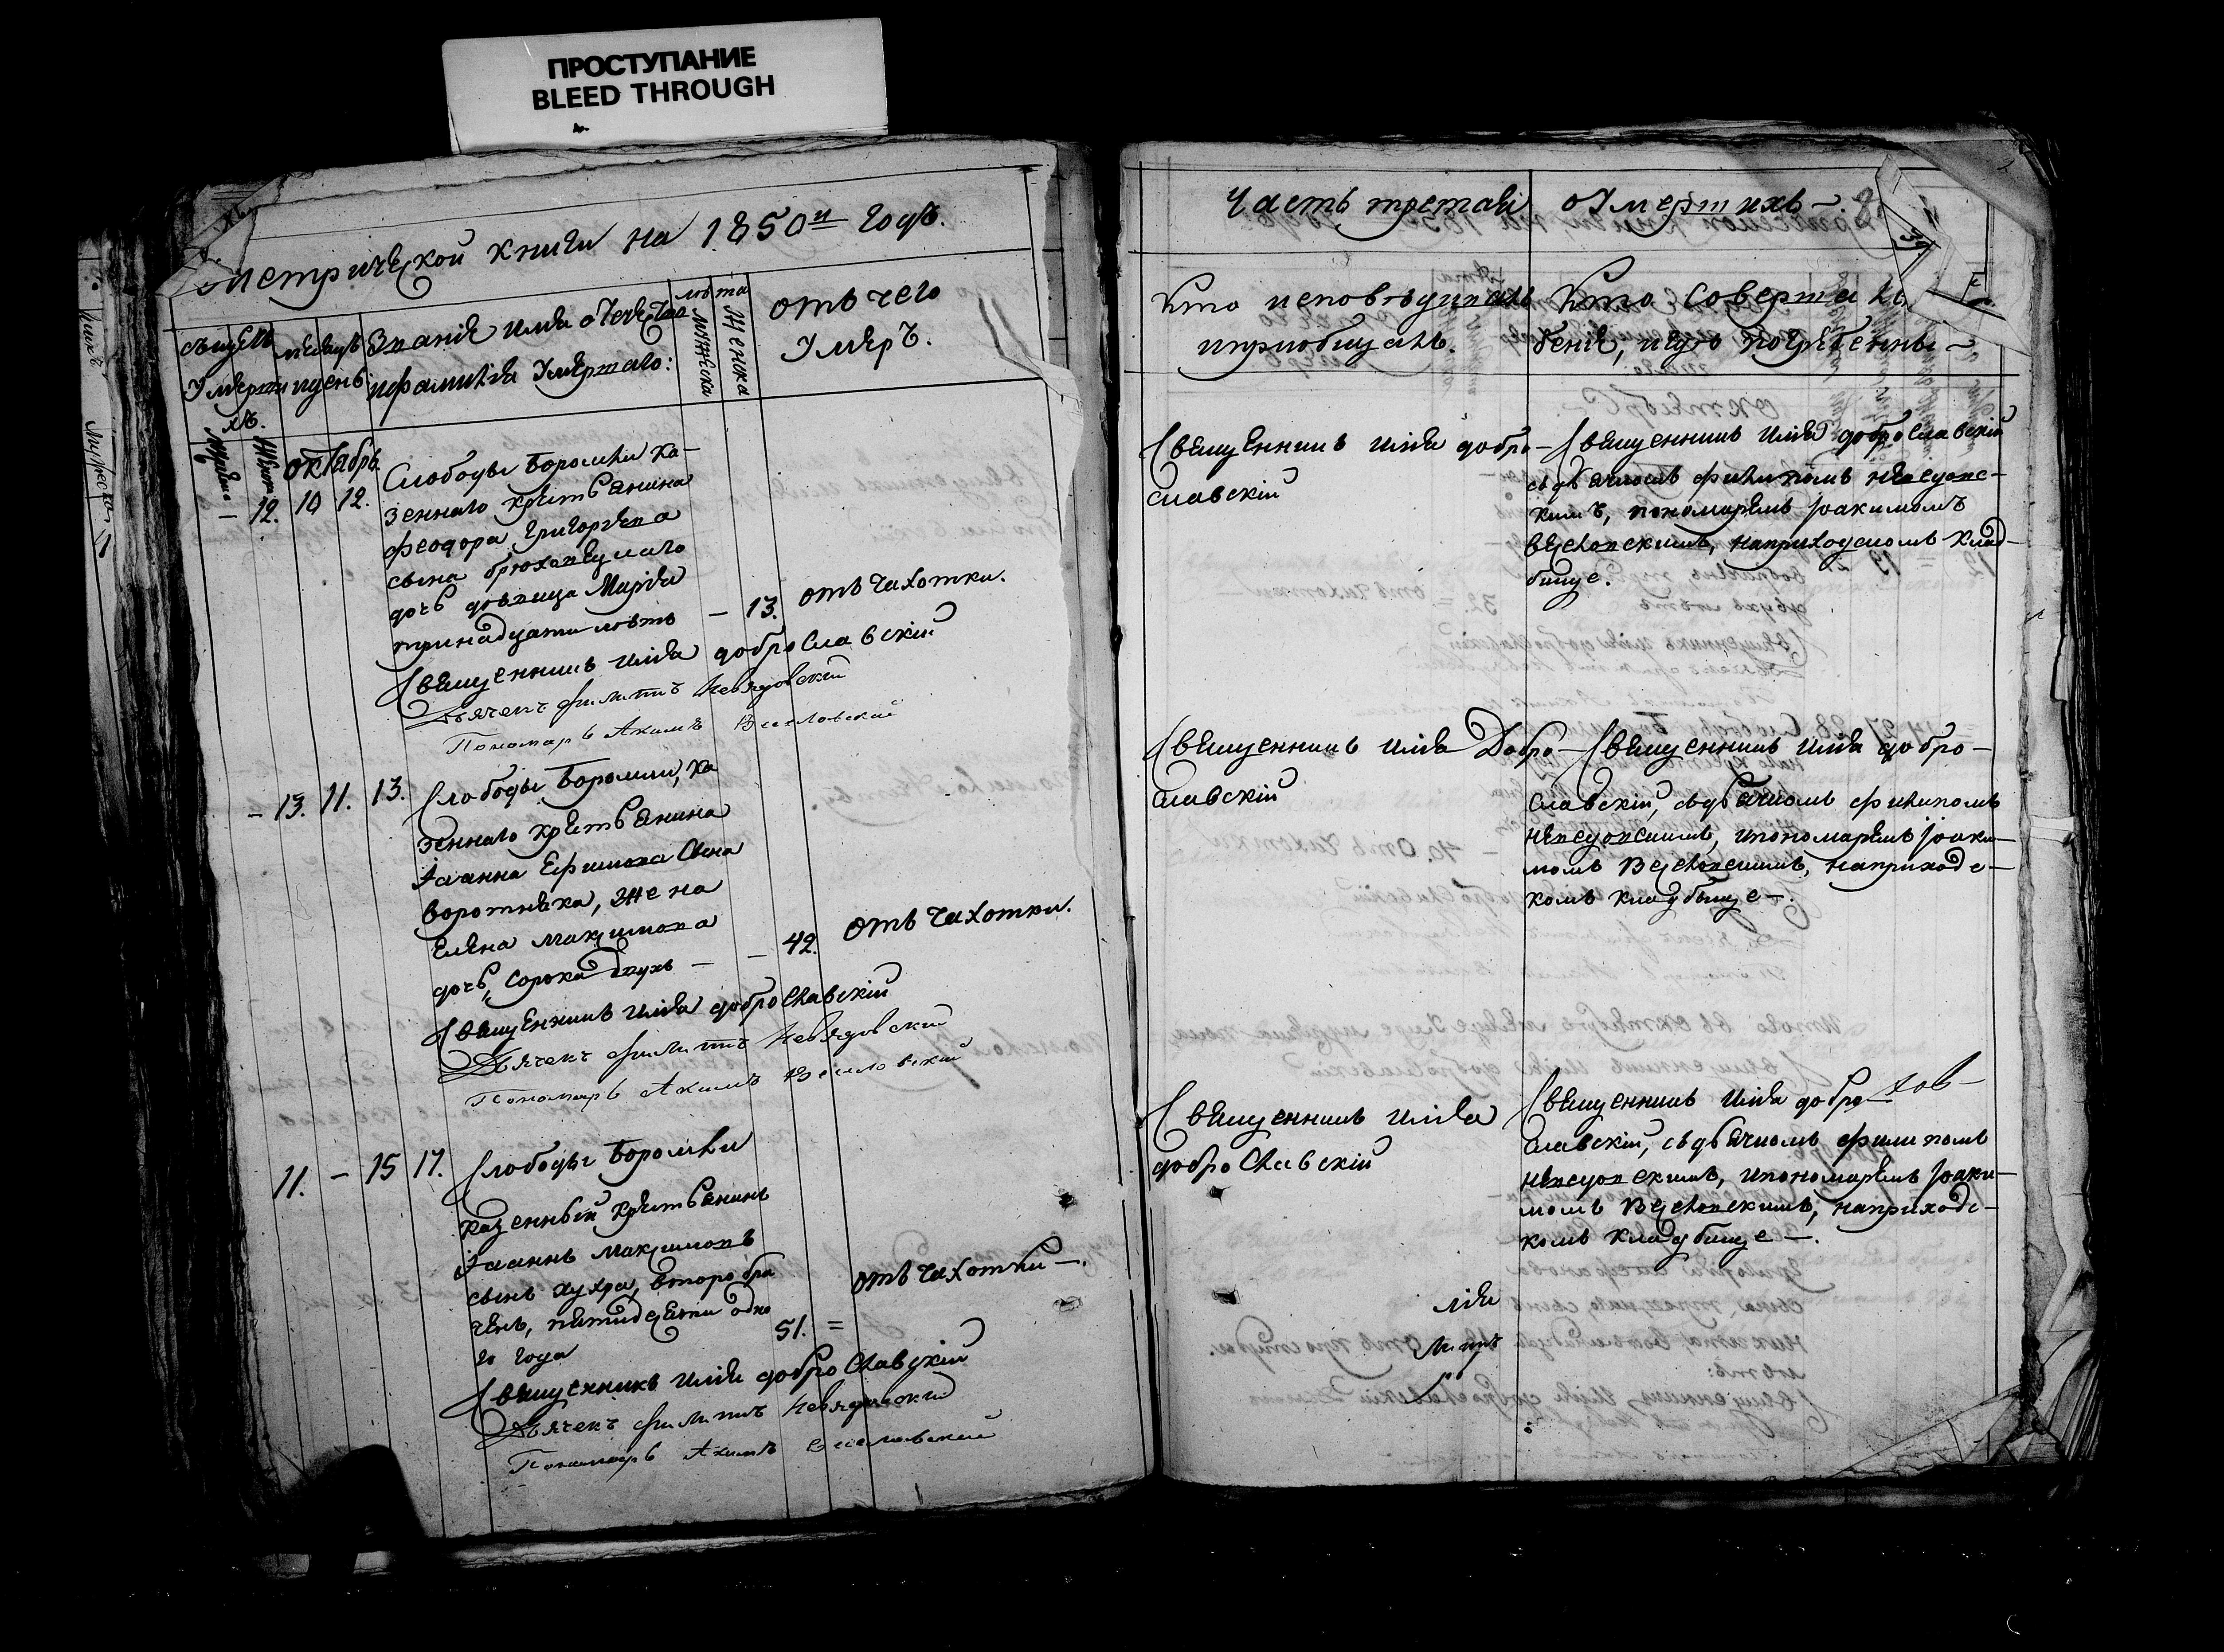 ПРОСТУПАНИЕ
BLEED THROUGH
Метрической книги на 1850й годъ.
Счетъ
Умерши
хъ.
мужеска
Женска
месяцъ
и день
Званіе имя отечество
и фамилія Умершаго:
лета
мужеска
Женска
отъ чего
Умеръ.
октабрь
– 12. 10 12.
Слободы Боромли ка–
зеннаго крестьянина
Феодора Григорьева
сына брюховецкаго
дочь девица Марія
тринадцати летъ – 13. отъ чахотки.
Священникъ Илія доброславскій
Дьячекъ Филиппъ Невядовский
Пономарь Акимъ Веселовский
– 13. 11. 13. Слободы Боромли, ка
зеннаго крестьянина
Іоанна Ефимова Сына
воротника, жена
Елена Максимова
дочь, сорока двухъ – – 42. отъ чахотки.
Священникъ Илія доброславскій
Дьячекъ Филиппъ Невядовский
Пономарь Акимъ Веселовский
11. – 15 17. Слободы Боромли
казенный крестьянинъ
Іоаннъ Максимовъ
сынъ Кухра, второбра
ченъ, пятидесяти одно
го года 51. = отъ чахотки –.
Священникъ Илія доброславскій
Дьячекъ Филиппъ Невядовский
Пономарь Акимъ Веселовский
Часть третай о Умершихъ –.
Кто исповедывалъ
и приобщалъ.
Кто совершалъ
бенія, и где погребены –
Священникъ Илія добро–
славскій
Священникъ Илія доброславскій
съ дьячкомъ Филипомъ Невядовс–
кимъ, пономаремъ Іоакимомъ
Веселовскимъ, на приходскомъ клад–
бище.
Священникъ Илія Добро–
славскій
Священникъ Илія добро–
славскій, съ дьячкомъ Филипомъ
Невядовскимъ, и пономаремъ Іоаки–
момъ Веселовскимъ, на приходс–
комъ кладбище –.
Священникъ Илія
доброславскій
Священникъ Илія добро–
славскій, съ дьячкомъ Филипомъ
Невядовскимъ, и пономаремъ Іоаки–
момъ Веселовскимъ, на приходс–
комъ кладбище –.